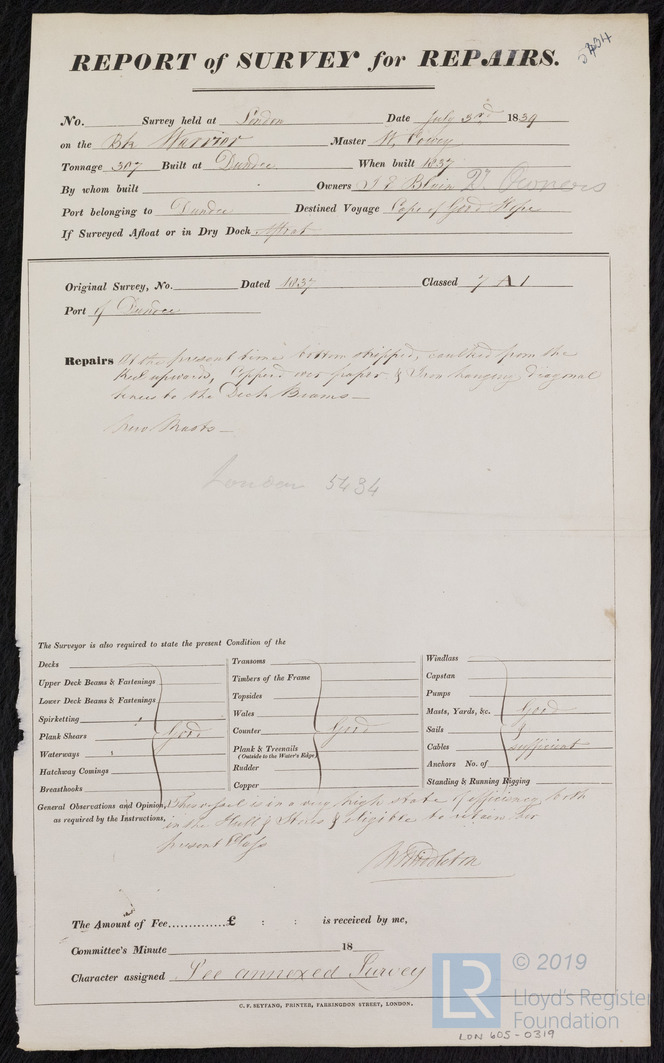 REPORT of SURVEY for REPAIRS.
5434
No. Survey held at London Date July 3rd 1839
on the Bk Warrior Master W.
Tonnage 307 Built at Dundee When built 1837
By whom built Owners Blain Owners
Port belonging to Dundee Destined Voyage Cape of Good Hope
If Surveyed Afloat or in Dry Dock Afloat
Original Survey, No. Dated 1837 Classed 7 A 1
Port of Dundee
Repairs At the present time bottom stripped, caulked from the
Keel upward, Coppered over paper & Iron hanging diagonal
knees to the Deck Beams—
New Masts—
London 5434
The Surveyor is also required to state the present Condition of the
Decks
Upper Deck Beams & Fastenings
Lower Deck Beams & Fastenings
Spirketting
Plank Shears Good
Waterways
Hatchway Comings
Breasthooks
Transoms
Timbers of the Frame
Topsides
Wales
Counter Good
Plank & Treenails
(Outside to the Water's Edge)
Rudder
Copper
Windlass
Capstan
Pumps
Masts, Yards, &c. Good
Sails
Cables sufficient
Anchors No. of
Standing & Running Rigging
General Observations and Opinion, This vessel is in a very high state of efficiency both
as required by the Instructions, in the Hull & Stores & eligible to retain her
present Class
Middleton
The Amount of Fee..............£ : : is received by me,
Committee's Minute 18
Character assigned See annexed Survey
C. F. SEYFANG, PRINTER, FARRINGDON STREET, LONDON.
LR
© 2019
Lloyd's Register
Foundation
LON 605-0319